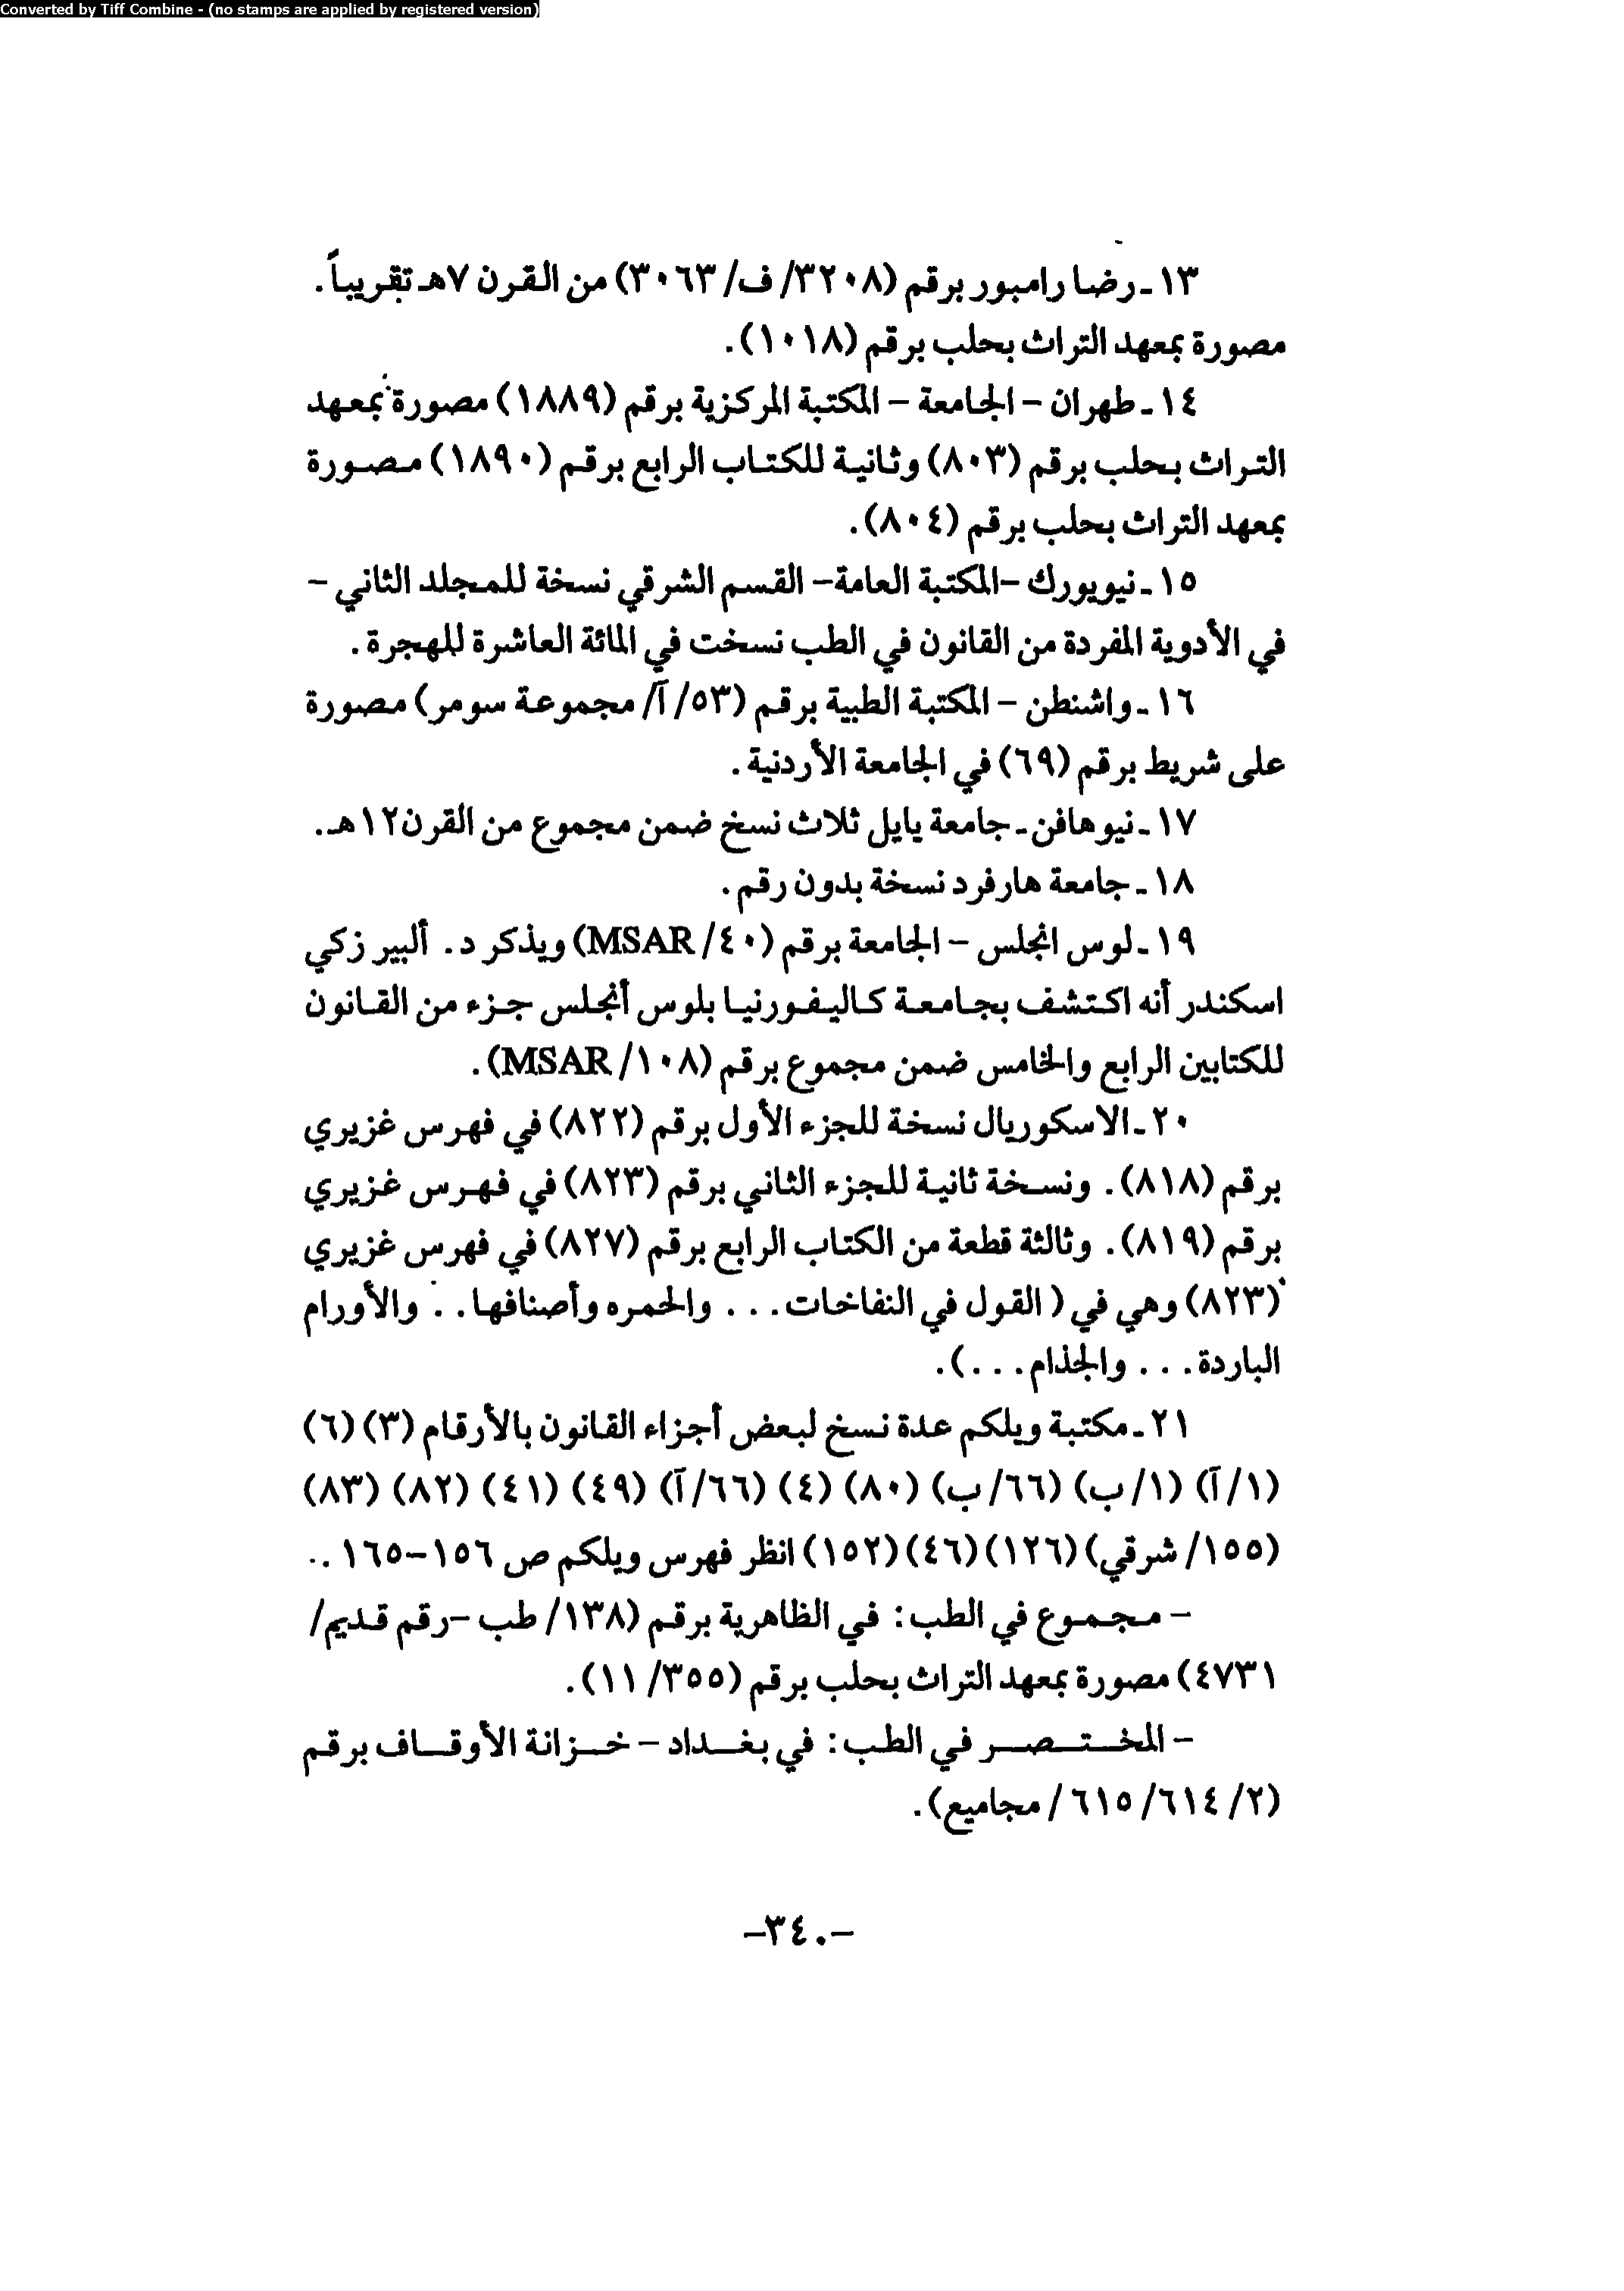 Converted by Tiff Combine - (no stamps are applied by registered version)
١٣ـ رضا رامبور برقم (٣٢٠٨/ ف/ ٣٠٦٣) من القرن ٧هـ تقريباً.
مصورة بمعهد التراث بحلب برقم (١٠١٨).
١٤ـ طهران – الجامعة – المكتبة المركزية برقم (١٨٨٩) مصورة بمعهد
التراث بحلب برقم (٨٠٣) وثانية للكتاب الرابع برقم (١٨٩٠) مصورة
بمعهد التراث بحلب برقم (٨٠٤).
١٥ـ نيويورك –المكتبة العامة– القسم الشرقي نسخة للمجلد الثاني –
في الأدوية المفردة من القانون في الطب نسخت في المائة العاشرة للهجرة.
١٦ـ واشنطن – المكتبة الطبية برقم (٥٣/ آ/ مجموعة سومر) مصورة
على شريط برقم (٦٩) في الجامعة الأردنية.
١٧ـ نيوهافن ـ جامعة يايل ثلاث نسخ ضمن مجموع من القرن١٢هـ.
١٨ـ جامعة هارفرد نسخة بدون رقم.
١٩ـ لوس انجلس – الجامعة برقم (٤٠/ MSAR) ويذكر د. ألبير زكي
اسكندر أنه اكتشف بجامعة كاليفورنيا بلوس أنجلس جزء من القانون
للكتابين الرابع والخامس ضمن مجموع برقم (١٠٨/ MSAR).
٢٠ـ الاسكوريال نسخة للجزء الأول برقم (٨٢٢) في فهرس غزيري
برقم (٨١٨). ونسخة ثانية للجزء الثاني برقم (٨٢٣) في فهرس غزيري
برقم (٨١٩). وثالثة قطعة من الكتاب الرابع برقم (٨٢٧) في فهرس غزيري
(٨٢٣) وهي في ( القول في النفاخات... والحمره وأصنافها.. والأورام
الباردة... والجذام...).
٢١ـ مكتبة ويلكم عدة نسخ لبعض أجزاء القانون بالأرقام (٣) (٦)
(١/ آ) (١/ ب) (٦٦/ ب) (٨٠) (٤) (٦٦/ آ) (٤٩) (٤١) (٨٢) (٨٣)
(١٥٥/ شرقي) (١٢٦) (٤٦) (١٥٢) انظر فهرس ويلكم ص ١٥٦–١٦٥ ..
– مجموع في الطب: في الظاهرية برقم (١٣٨/ طب –رقم قديم/
٤٧٣١) مصورة بمعهد التراث بحلب برقم (٣٥٥/ ١١).
– المختصر في الطب: في بغداد – خزانة الأوقاف برقم
(٢/ ٦١٤/ ٦١٥/ مجاميع).
–٣٤٠–